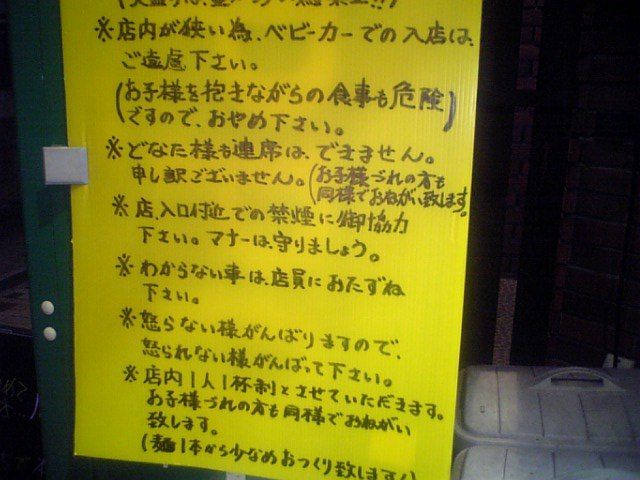 ※店内が狭い為、ベビーカーでの入店は、
ご遠慮下さい。
(お子様を抱きながらの食事も危険)
ですので、おやめ下さい。
※どなた様も連席は、できません。
申し訳ございません。(お子様づれの方も
同様でおねがい致します。
※店、入口付近での禁煙に御協力
下さい。マナーは、守りましょう。
※わからない事は、店員におたずね
下さい。
※怒らない様がんばりますので、
怒られない様がんばって下さい。
※店内1人1杯制とさせていただきます。
お子様づれの方も同様でおねがい
致します。
(麺1本から少なめおつくり致します!)